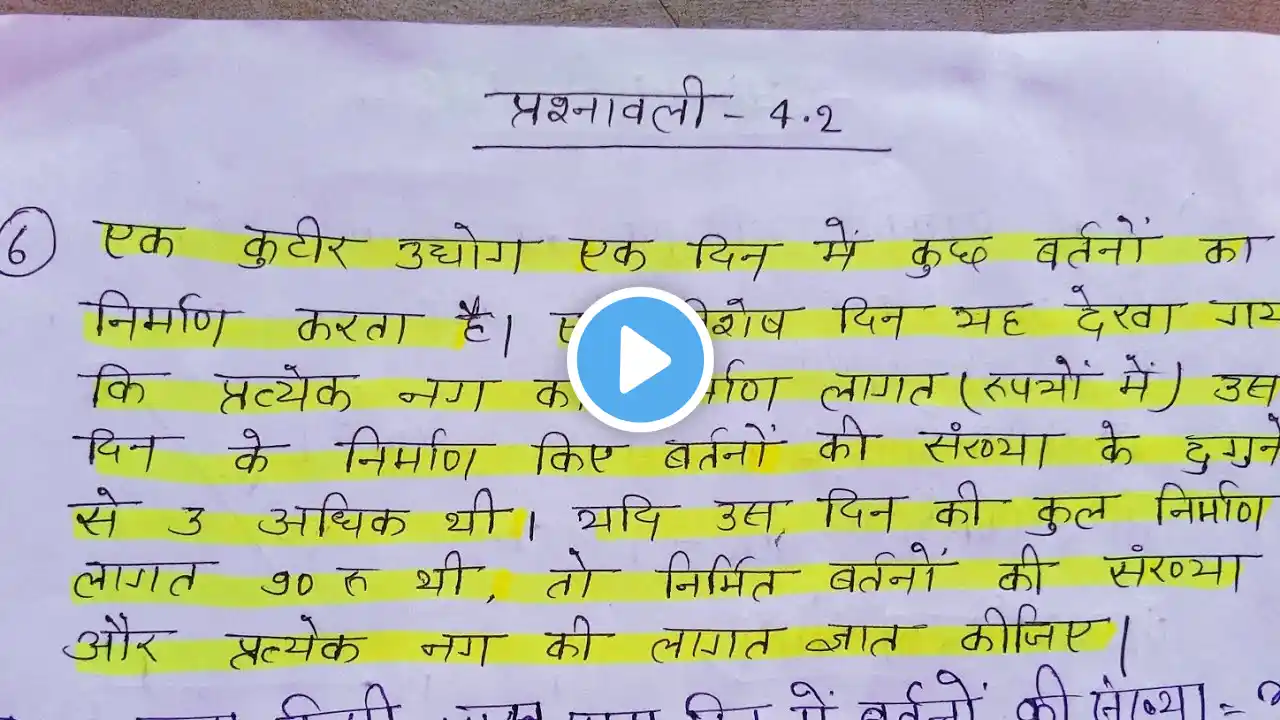 प्रश्नावली - 4.2
6 एक कुटीर उद्योग एक दिन में कुछ बर्तनों का
निर्माण करता है। दिन यह देखा
कि प्रत्येक नग लागत (रुपयों में) उस
दिन के निर्माण किए बर्तनों की संख्या के दुगुने
से 3 अधिक थी। यदि उस दिन की कुल निर्माण
लागत 90 रु थी, तो निर्मित बर्तनों की संख्या
और प्रत्येक नग की लागत ज्ञात कीजिए।
दिन में बर्तनों की संख्या =